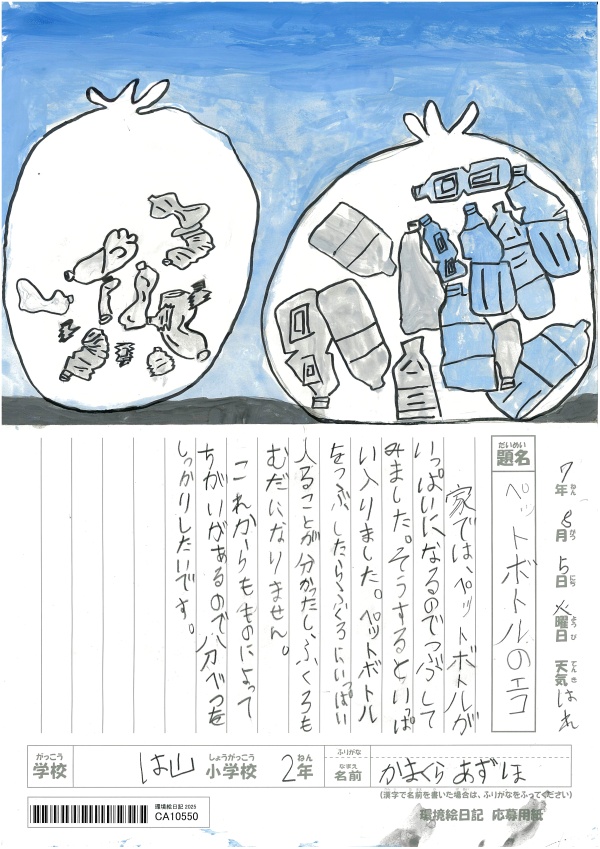 7年8月5日火曜日 天気はれ
ねん がつ にち ようび てんき
だいめい
題名
ペットボトルのエコ
家では、ペットボトルが
いっぱいになるのでつぶして
みました。そうするといっぱ
い入りました。ペットボトル
をつぶしたらふくろにいっぱい
入ることが分かったし、ふくろも
むだになりません。
これからもものによって
ちがいがあるので分べつを
しっかりしたいです。
がっこう
学校
は山
しょうがっこう
小学校
2年
ねん
ふりがな
なまえ
名前
かまくらあずほ
(漢字で名前を書いた場合は、ふりがなをふってください)
環境絵日記 2025
CA10550
環境絵日記 応募用紙